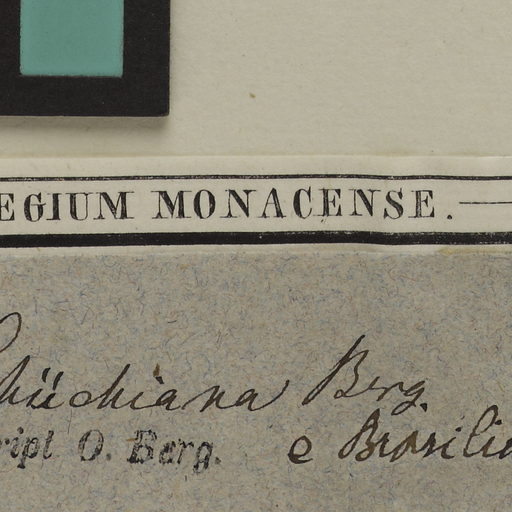 EGIUM MONACENSE.
hüchiana Berg.
ript O. Berg. e Brasilia